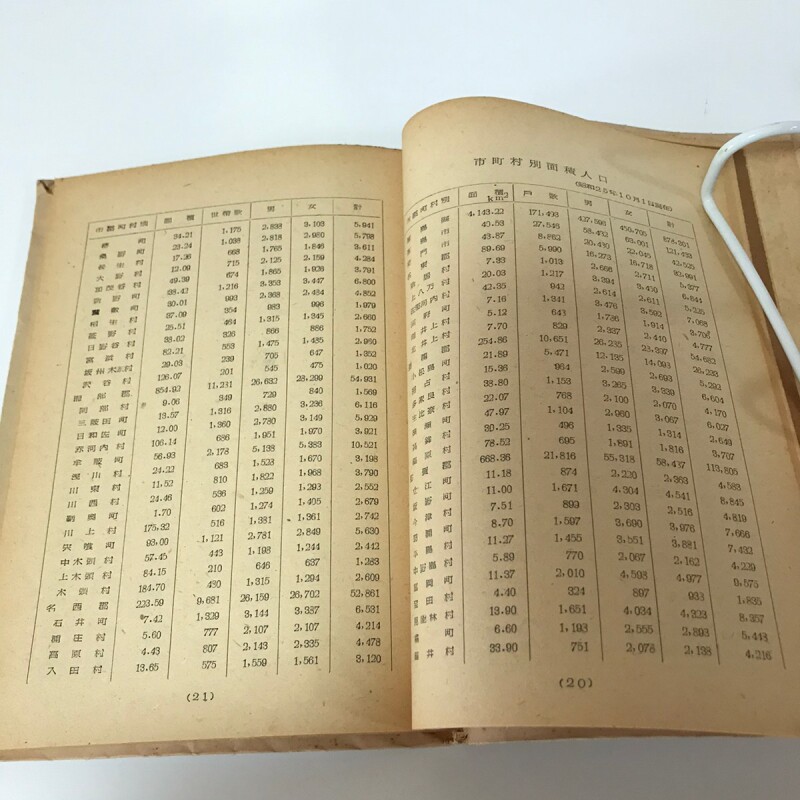 市町村別面積人口
(昭和25年10月1日現在)
市郡町村別 面積km² 戸数 男 女 計
4,143.22 171,493 427,596 450,705 878,301
島市 40.53 27,548 58,432 63,001 121,433
門市 43.87 8,862 20,480 22,045 42,525
89.69 5,990 16,273 16,718 32,991
7.33 1,013 2,666 2,711 5,377
上八万村 20.03 1,217 3,394 3,450 6,844
42.35 942 2,614 2,611 5,225
7.16 1,341 3,476 3,592 7,068
5.12 643 1,914 3,706
7.70 829 2,337 2,440 4,777
254.86 10,651 26,235 28,397 54,632
21.89 5,471 12,135 14,093
15.36 964 2,599 2,693 5,292
38.80 1,153 3,265 3,339 6,604
22.07 768 2,100 2,070 4,170
47.97 1,104 2,960 3,067 6,027
39.25 496 1,335 1,314 2,649
78.52 695 1,891 1,816 3,707
郡 668.36 21,816 55,318 58,487 113,805
江 11.18 874 2,220 2,363 4,583
野町 11.00 1,671 4,304 4,541 8,845
7.51 899 2,303 2,516 4,819
8.70 1,597 3,690 3,976 7,666
島村 11.27 1,455 3,551 3,881 7,432
島村 5.89 770 2,067 2,162 4,229
岡町 11.37 2,010 4,598 4,977 9,575
田村 4.40 324 897 938 1,835
林村 13.90 1,651 4,034 4,323 8,357
町 6.60 1,193 2,555 2,893 5,448
井村 33.90 751 2,078 2,138 4,216
(20)
市郡町村別 面積 世帯数 男 女 計
町 34.21 1,175 2,838 3,103 5,941
桑野町 23.24 1,038 2,818 2,980 5,798
村 17.36 668 1,765 1,846 3,611
大野村 12.09 715 2,125 2,159 4,284
加茂谷村 49.39 674 1,865 1,926 3,791
町 38.42 1,216 3,353 3,447 6,800
町 30.01 992 2,368 2,484 4,852
相生村 37.09 354 983 996 1,979
村 464 1,315 1,345 2,660
日野谷村 33.02 326 866 886 1,752
宮浜村 82.21 553 1,475 1,485 2,960
29.03 239 705 647 1,352
沢谷村 126.07 201 545 475 1,020
郡 854.92 11,231 26,632 28,299 54,931
阿部村 9.06 349 729 840 1,569
三岐田町 13.57 1,316 2,880 3,236 6,116
日和佐町 12.00 1,360 2,780 3,149 5,929
赤河内村 106.14 686 1,951 1,970 3,921
牟岐町 56.93 2,178 5,138 5,383 10,521
浅川村 24.22 683 1,528 1,670 3,198
川東村 11.52 810 1,822 1,968 3,790
川西村 24.46 536 1,259 1,293 2,552
鞆奥町 1.70 602 1,274 1,405 2,679
川上村 175.32 516 1,381 1,361 2,742
宍喰町 93.00 1,121 2,781 2,849 5,630
中木頭村 57.45 443 1,198 1,244 2,442
上木頭村 84.15 210 646 637 1,283
木頭村 184.70 430 1,315 1,294 2,609
名西郡 223.59 9,681 26,159 26,702 52,861
石井町 7.42 1,329 3,144 3,387 6,531
村 5.60 777 2,107 2,107 4,214
高原村 4.43 807 2,143 2,335 4,478
入田村 13.65 575 1,559 1,561 3,120
(21)